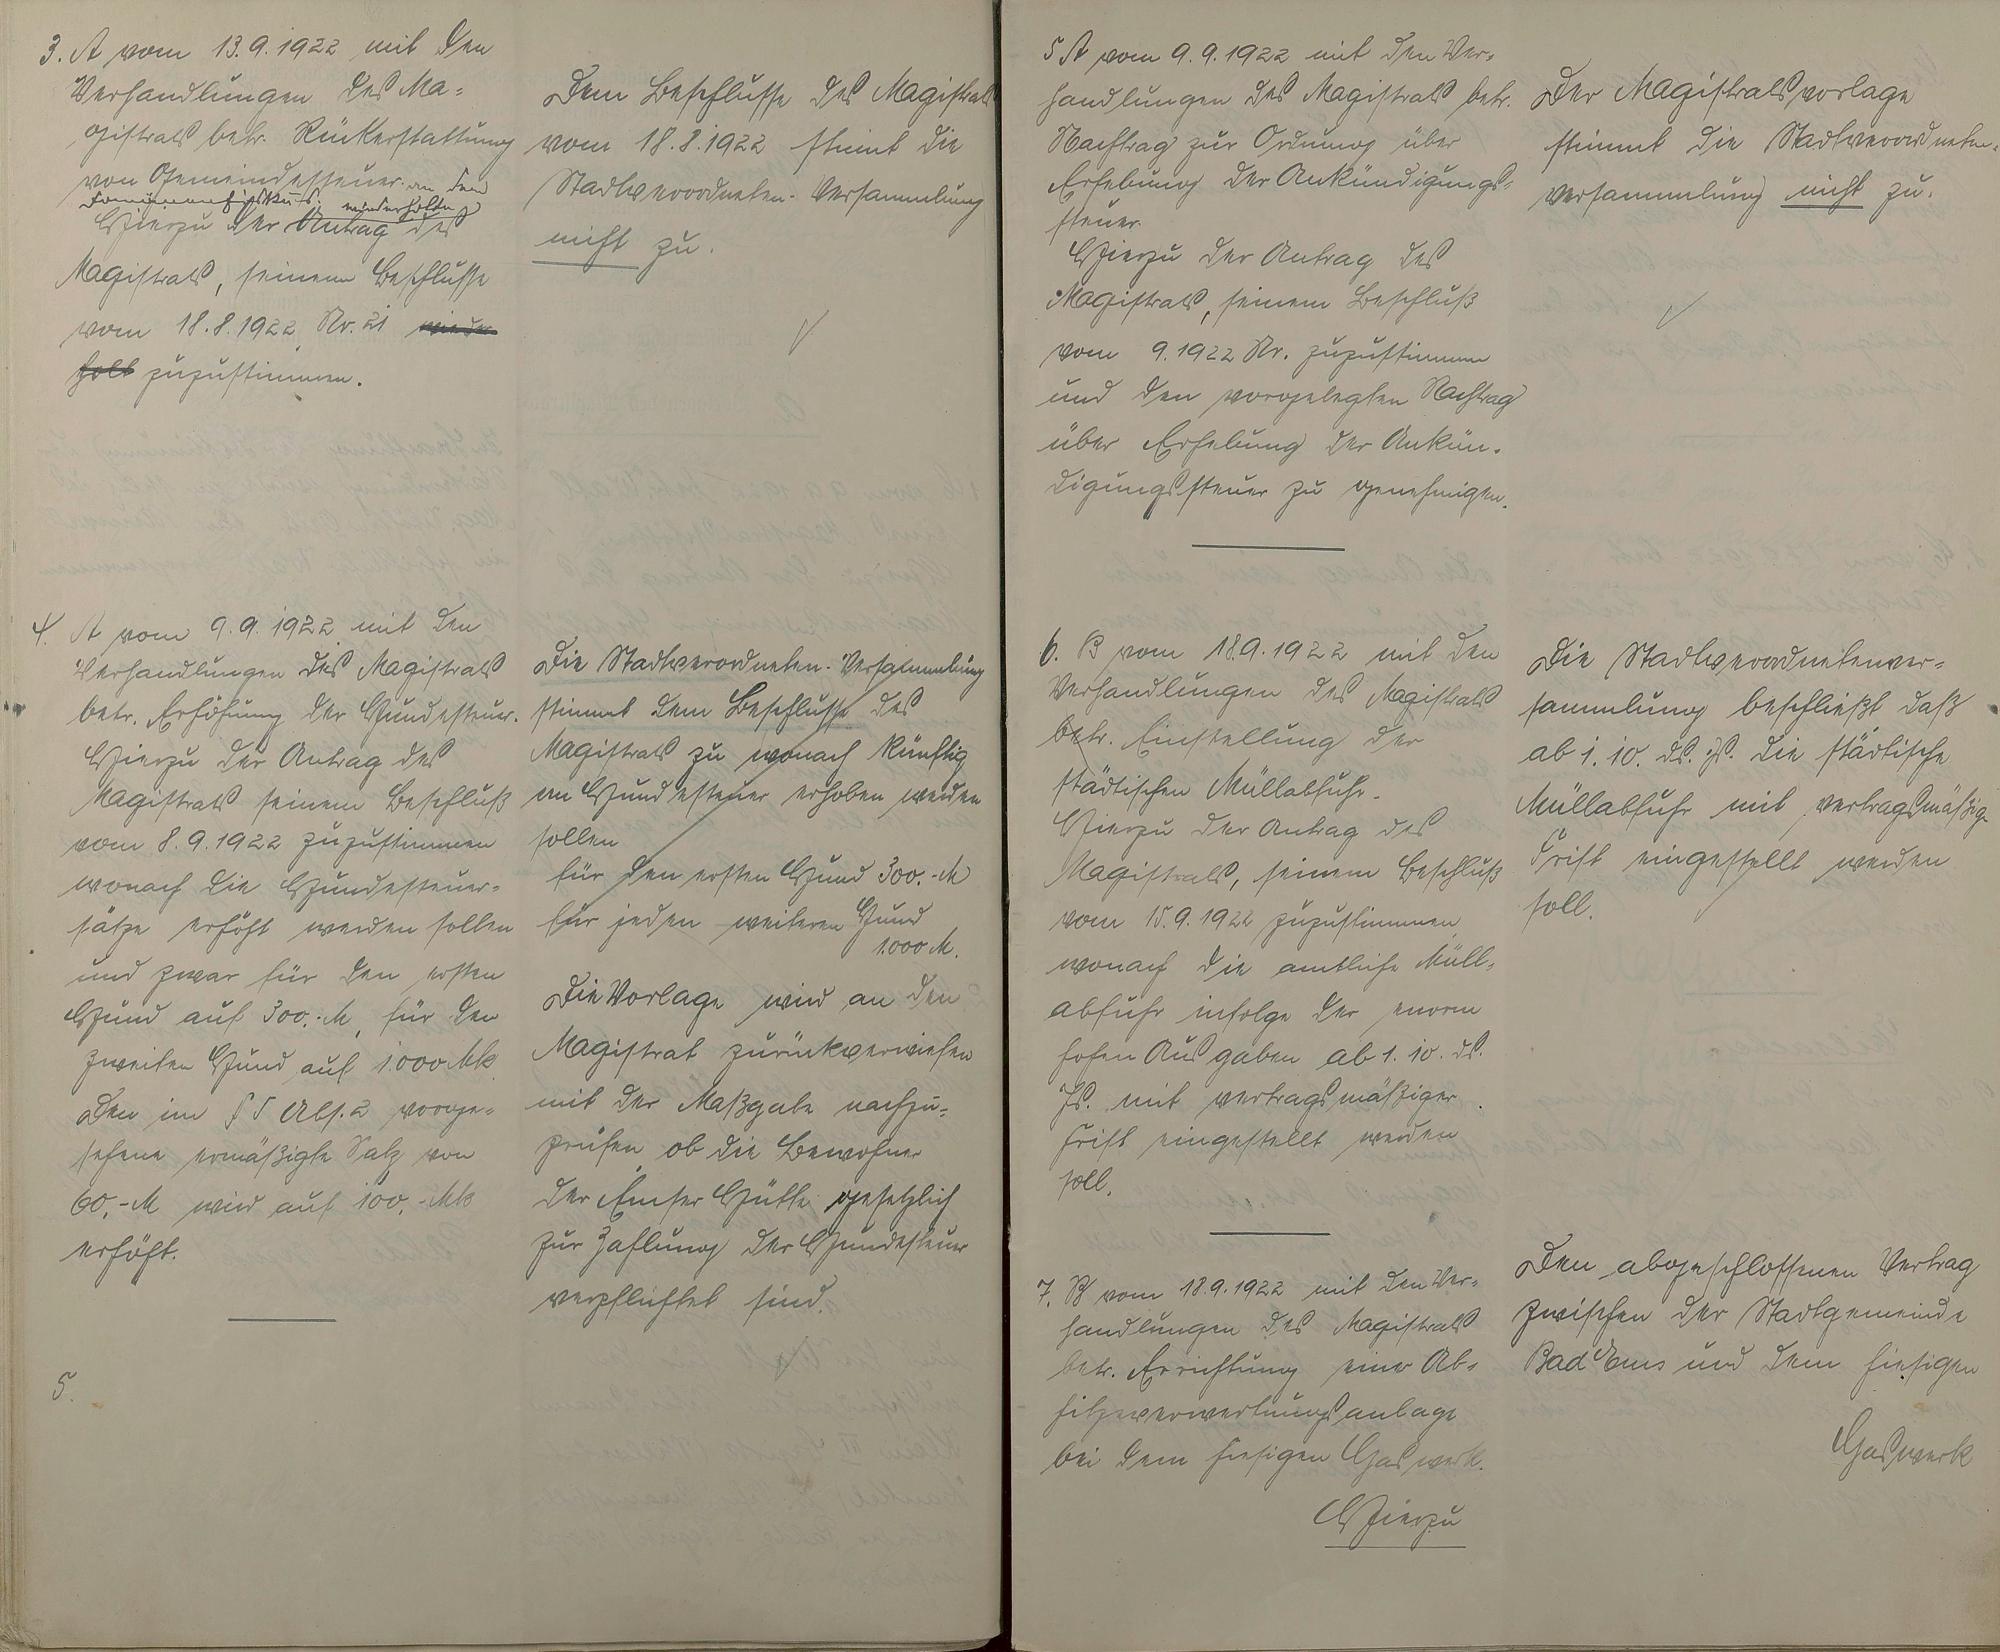 3. A vom 13.9.1922 mit den
Verhandlungen des Ma-
gistrats betr. Rückerstattung
von Gemeindesteuer an den
wiederholte
Hierzu der Antrag des
Magistrats, seinem Beschlusse
vom 18.8.1922 Nr. 21 wieder
holt zuzustimmen.
Dem Beschlusse des Magistrats
vom 18.8.1922 stimmt die
Stadtverordneten-Versammlung
nicht zu.
4. A vom 9.9.1922 mit den
Verhandlungen des Magistrats
betr. Erhöhung der Hundesteuer.
Hierzu der Antrag des
Magistrats seinem Beschluß
vom 8.9.1922 zuzustimmen
wonach die Hundesteuer-
sätze erhöht werden sollen
und zwar für den ersten
Hund auf 300,-M, für den
zweiten Hund auf 1000 Mk
Den im § 5 Abs. 2 vorge-
sehene ermäßigte Satz von
60,-M wird auf 100,-Mk
erhöht.
Die Stadtverordneten-Versammlung
stimmt dem Beschlusse des
Magistrats zu wonach künftig
an Hundesteuer erhoben werden
sollen
für den ersten Hund 300.-M
für jeden weiteren Hund
1000 M.
Die Vorlage wird an den
Magistrat zurückverwiesen
mit der Maßgabe nachzu-
prüfen ob die Bewohner
der Emser Hütte gesetzlich
zur Zahlung der Hundesteuer
verpflichtet sind.
5.
5 A vom 9.9.1922 mit den Ver-
handlungen des Magistrats betr.
Nachtrag zur Ordnung über
Erhebung der Ankündigungs-
steuer.
Hierzu der Antrag des
Magistrats, seinem Beschluß
vom 9.1922 Nr. zuzustimmen
und den vorgelegten Nachtrag
über Erhebung der Ankün-
digungssteuer zu genehmigen.
Der Magistratsvorlage
stimmt die Stadtverordneten-
versammlung nicht zu.
6. B vom 18.9.1922 mit den
Verhandlungen des Magistrats
betr. Einstellung der
städtischen Müllabfuhr.
Hierzu der Antrag des
Magistrats, seinem Beschluß
vom 15.9.1922 zuzustimmen
wonach die amtliche Müll-
abfuhr infolge der enorm
hohen Ausgaben ab 1.10. ds.
Js. mit vertragsmäßiger
Frist eingestellt werden
soll.
Die Stadtverordnetenver-
sammlung beschließt daß
ab 1.10. ds. Js. die städtische
Müllabfuhr mit vertragsmäßig.
Frist eingestellt werden
soll.
7. B vom 18.9.1922 mit den Ver-
handlungen des Magistrats
betr. Errichtung einer Ab-
hitzeverwertungsanlage
bei dem hiesigen Gaswerk.
Hierzu
Den abgeschlossenen Vertrag
zwischen der Stadtgemeinde
Bad Ems und dem hiesigen
Gaswerk